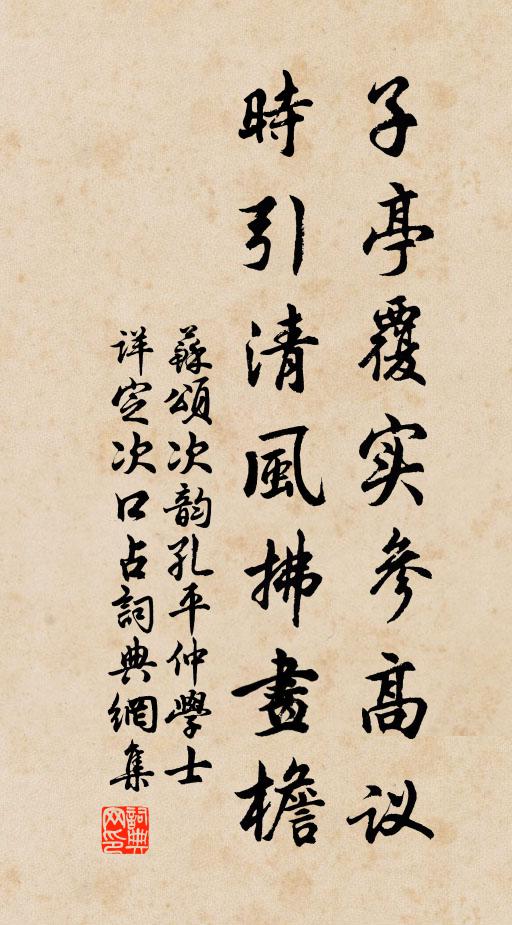 子亭覆实參高议
時引清風拂畫檐
蘇頌次韵孔平仲學士
详定次口占詞典網集
詞典网印